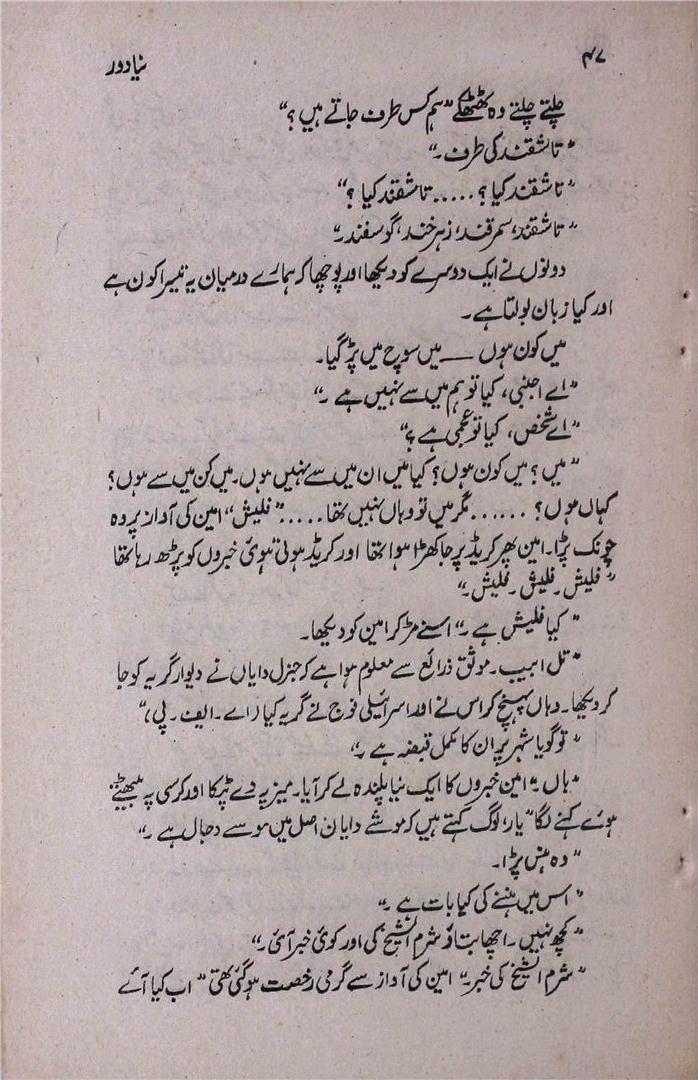 ۴۷
نیا دور
چلتے چلتے وہ ٹھٹھکے "ہم کس طرف جاتے ہیں ؟"
"تاشقند کی طرف۔"
"تاشقند کیا ؟ ..... تاشقند کیا ؟"
"تاشقند، سمرقند، زہرخند، گوسفند۔"
دونوں نے ایک دوسرے کو دیکھا اور پوچھا کہ ہمارے درمیان یہ تیسرا کون ہے
اور کیا زبان بولتا ہے۔
میں کون ہوں ــــ میں سوچ میں پڑ گیا۔
"اے اجنبی، کیا تو ہم میں سے نہیں ہے۔"
"اے شخص، کیا تو عجمی ہے ؟"
"میں ؟ میں کون ہوں؟ کیا میں ان میں سے نہیں ہوں۔ میں کن میں سے ہوں؟
کہاں ہوں ؟ ...... مگر میں تو وہاں نہیں تھا ....." فلیش" امین کی آواز پر وہ
چونک پڑا۔ امین پھر کریڈ پر جا کھڑا ہوا تھا اور کریڈ ہوتی ہوئی خبروں کو پڑھ رہا تھا
"فلیش۔ فلیش۔ فلیش۔"
"کیا فلیش ہے۔" اسنے مڑ کر امین کو دیکھا۔
"تل ابیب۔ موثق ذرائع سے معلوم ہوا ہے کہ جنرل دایاں نے دیوار گریہ کو جا
کر دیکھا۔ وہاں پہنچ کر اس نے اور اسرائیلی فوج نے گریہ کیا (اے۔ ایف۔ پی)"
"تو گویا شہر پر ان کا مکمل قبضہ ہے۔"
"ہاں" امین خبروں کا ایک نیا پلندہ لے کر آیا۔ میز پہ دے پٹکا اور کرسی پہ بیٹھتے
ہوئے کہنے لگا "یار، لوگ کہتے ہیں کہ موشے دایان اصل میں موسے دجال ہے۔"
"وہ ہنس پڑا۔
"اس میں ہنسنے کی کیا بات ہے۔"
"کچھ نہیں۔ اچھا بتاؤ شرم الشیخ کی اور کوئی خبر آئی۔"
"شرم الشیخ کی خبر۔" امین کی آواز سے گرمی رخصت ہو گئی تھی "اب کیا آئے